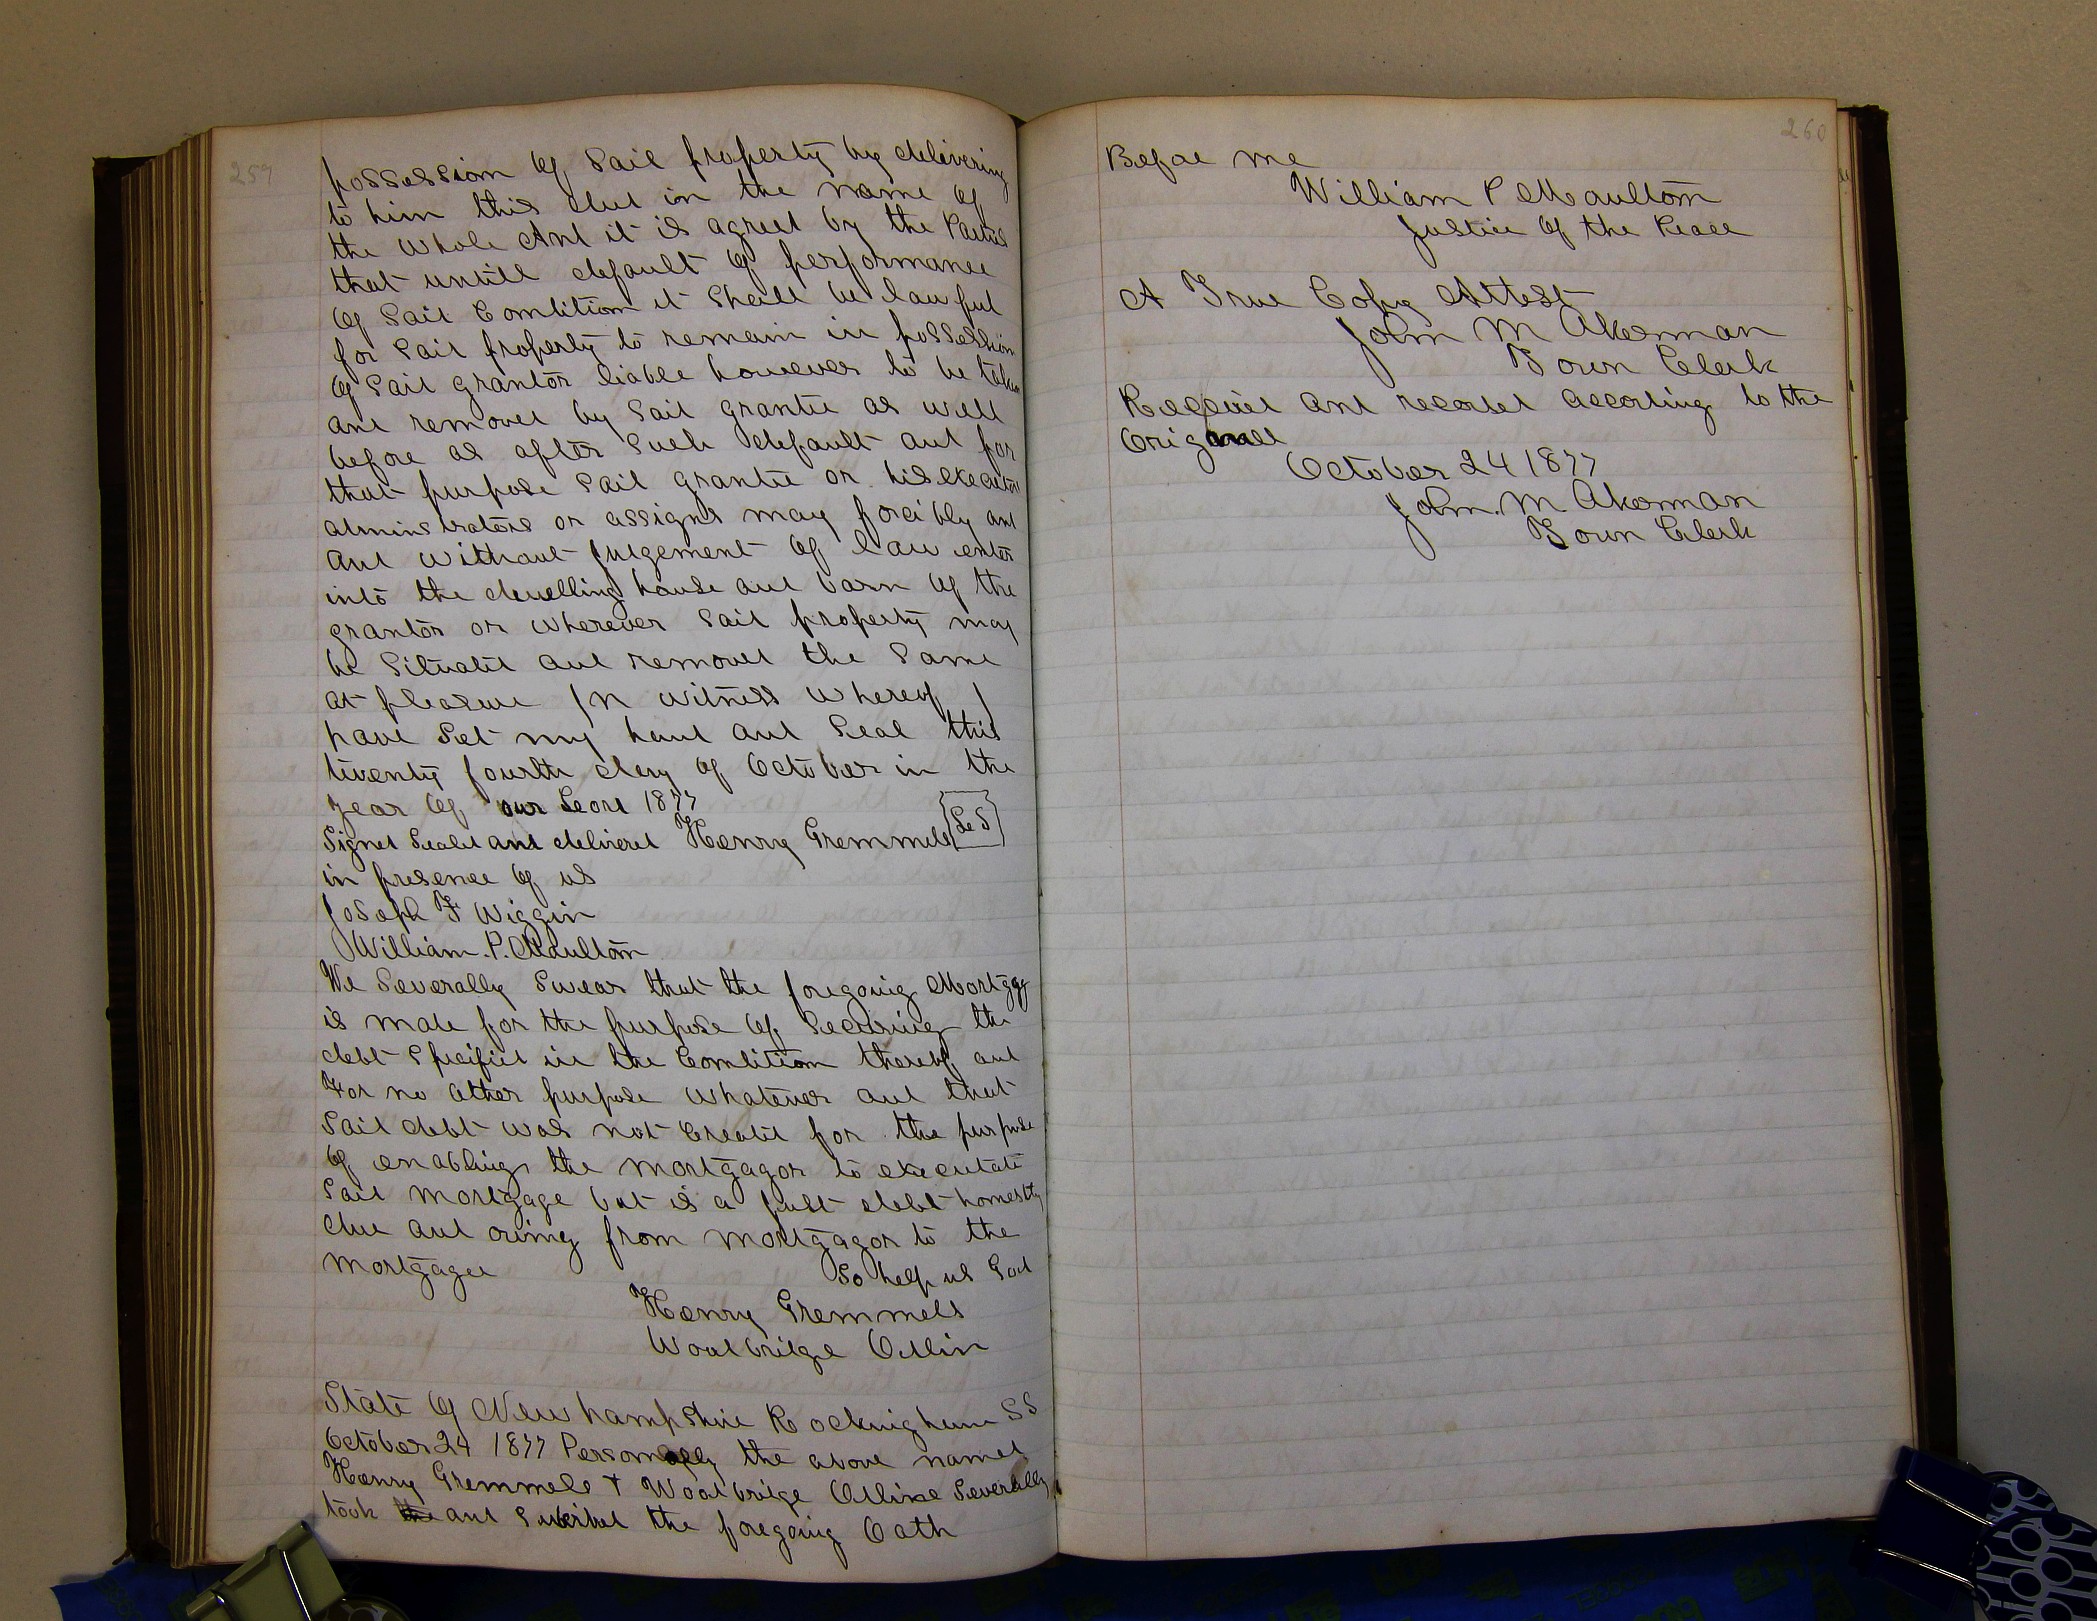 259
possession of Said property by delivering
to him this due in the name of
the whole And it is agreed by the Parties
that untill default of performance
of Said Condition it Shall be lawful
for Said property to remain in possession
of Said grantor liable however to be taken
and removed by Said grantee as well
before as after Such default and for
that purpose Said grantee or his executors
adminstrators or assigns may forcibly and
and without judgement of law enter
into the dwelling house and barn of the
grantor or wherever Said property may
be Situated and removed the Same
at pleasure In witness whereof I
have Set my hand and Seal this
twenty fourth day of October in the
year of our Leord 1877
Signed Sealed and delivered Henry Gremmels LeS
in presence of us
Joseph F Wiggin
William. P. Moulton
We Severally Swear that the foregoing Mortgag
is made for the purpose of Securing the
debt Specified in the Condition thereof and
For no other purpose whatever and that
Said debt was not Created for the purpose
of enabling the mortgagor to executate
Said mortgage but is a just debt honestly
due and owing from mortgagor to the
mortgagee So help us God
Henry Gremmels
Woodbridge Odlin
State of New hampshire Rockingham SS
October 24 1877 Personally the above named
Henry Gremmels + Woodbridge Odline Severally
took the and Subscribed the foregoing Oath
260
Before me
William P Moulton
Justice of the Peace
A True Copy Attest
John M Akerman
Town Clerk
Received and recorded according to the
Origanall
October 24 1877
John. M Akerman
Town Clerk